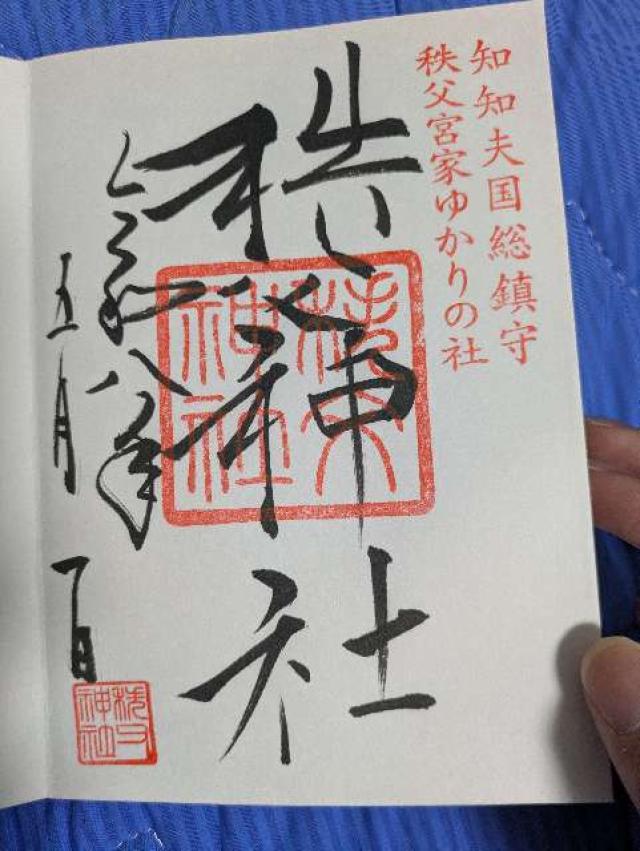 知知夫国総鎮守
秩父宮家ゆかりの社
秩父神社
秩父神社
令和八年
五月一日
秩父神社